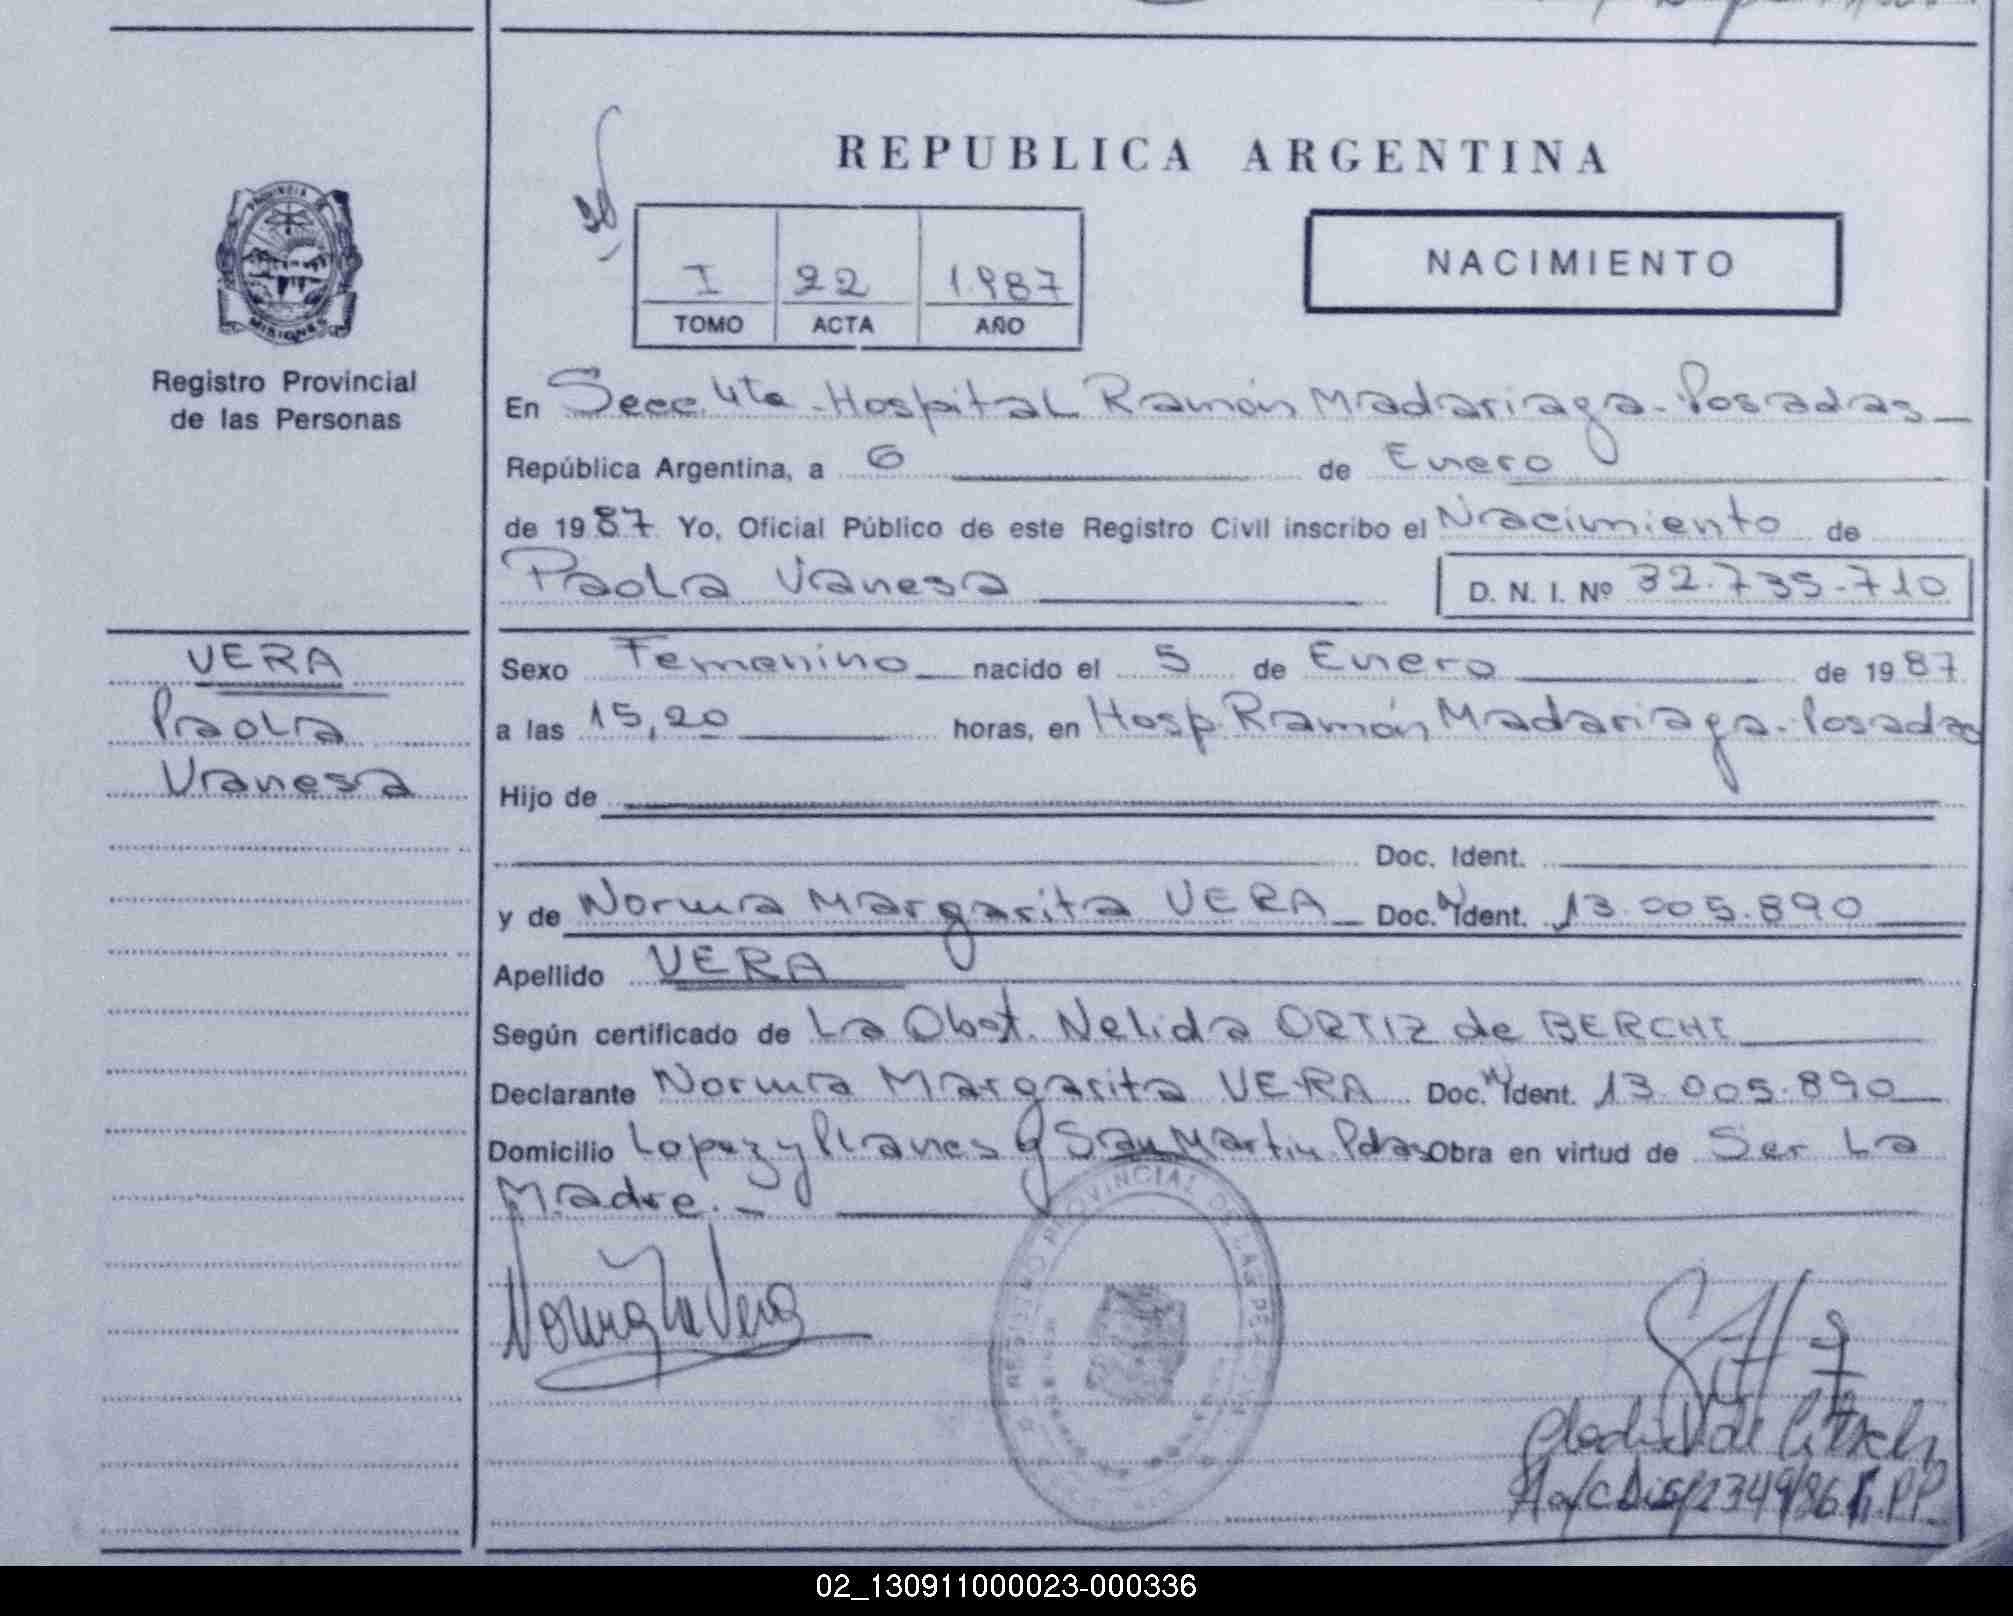 REPUBLICA ARGENTINA
PROVINCIA DE
MISIONES
Registro Provincial
de las Personas
I 22 1.987
TOMO ACTA AÑO
NACIMIENTO
En Secc. 4ta - Hospital Ramón Madariaga - Posadas
República Argentina, a 6 de Enero
de 1987 Yo, Oficial Público de este Registro Civil inscribo el Nacimiento de
Paola Vanesa D. N. I. Nº 32.735.710
VERA
Paola
Vanesa
Sexo Femenino nacido el 5 de Enero de 1987
a las 15,20 horas, en Hosp. Ramón Madariaga - Posadas
Hijo de
Doc. Ident.
y de Norma Margarita VERA Doc. Ident. 13.005.890
Apellido VERA
Según certificado de La Obst. Nelida ORTIZ de BERCHI
Declarante Norma Margarita VERA Doc. Ident. 13.005.890
Domicilio Lopez y Planes y San Martin Pdas Obra en virtud de Ser La
Madre.-
Norma M Vera
REGISTRO PROVINCIAL DE LAS PERSONAS
A/c Disp 2349/86 R.P.P.
02_130911000023-000336